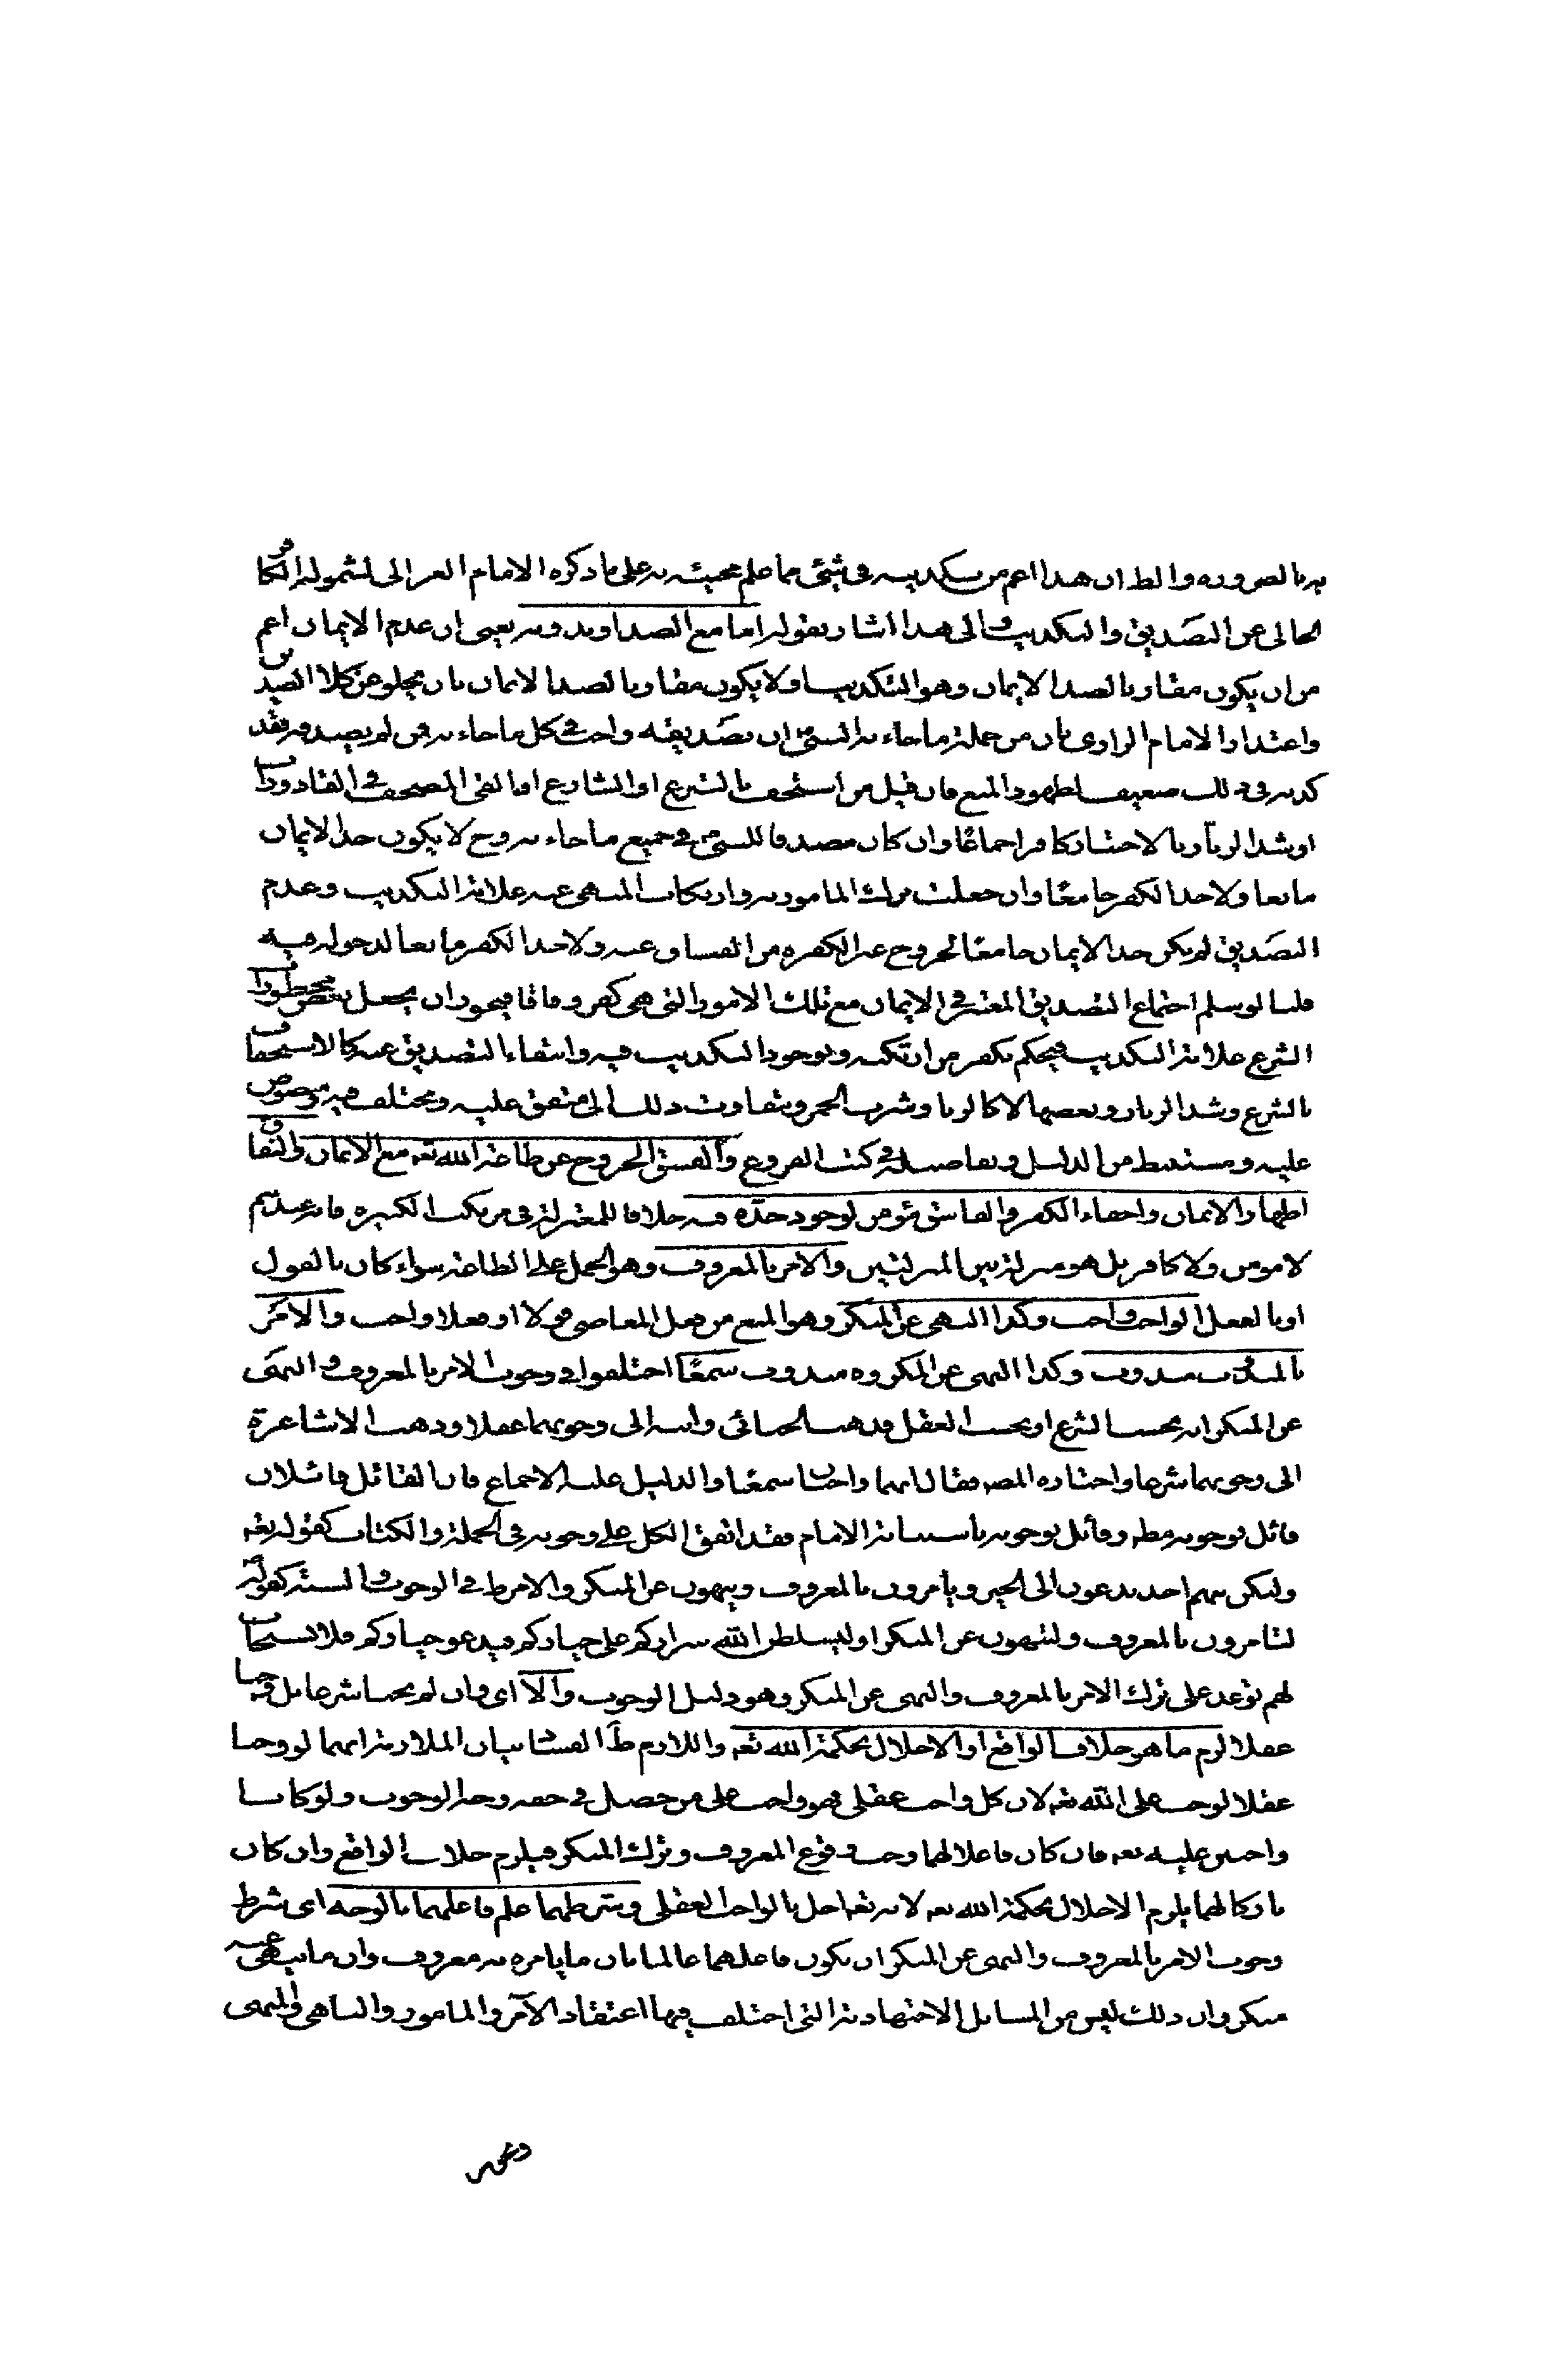 به بالضرورة والظ ان هذا اعم من تكذيبه فى شئ مما علم مجيئه به على ما ذكره الامام الغزالى لشموله الكافر
الخالى عن التصديق والتكذيب والى هذا اشار بقوله اما مع الضد او بدونه يعنى ان عدم الايمان اعم
من ان يكون مقارنا لضد الايمان وهو التكذيب او لا يكون مقارنا لضد الايمان بان يخلو عن كلا الضدين
واعتذار الامام الرازى بان من جملة ما جاء به النبى ان تصديقه واجب فى كل ما جاء به فمن لم يصدقه فقد
كذبه فى ذلك ضعيف لظهور المنع فان قيل من استخف بالشرع او الشارع او القى المصحف فى القاذورات
او شد الزنار بالاختيار كافر اجماعا وان كان مصدقا للنبى فى جميع ما جاء به وح لا يكون حد الايمان
مانعا ولا حد الكفر جامعا وان جعلت ترك المامور به وارتكاب المنهى عنه علامة التكذيب وعدم
التصديق لم يكن حد الايمان جامعا لخروج غير الكفرة من الفساق عنه ولا حد الكفر مانعا لدخوله فيه
قلنا لو سلم اجتماع التصديق المعتبر فى الايمان مع تلك الامور التى هى كفر وفاقا فيجوز ان يجعل بعض محظورات
الشرع علامة التكذيب فيحكم بكفر من ارتكبه وبوجود التكذيب فيه وانتفاء التصديق عنه كالاستخفاف
بالشرع وشد الزنار وبعضها لا كالزنا وشرب الخمر ويتفاوت ذلك الى متفق عليه ومختلف فيه ومنصوص
عليه ومستنبط من الدليل وتفاصيله فى كتب الفروع والفسق الخروج عن طاعة الله تعه مع الايمان والنفاق
اظهار الايمان واخفاء الكفر والفاسق مؤمن لوجود حده فيه خلافا للمعتزلة فى مرتكب الكبيرة فانه عندهم
لا مومن ولا كافر بل هو منزلة بين المنزلتين والامر بالمعروف وهو الحمل على الطاعة سواء كان بالقول
او بالفعل الواجب واجب وكذا النهى عن المنكر وهو المنع من فعل المعاصى قولا او فعلا واجب والامر
بالمندوب مندوب وكذا النهى عن المكروه مندوب سمعا اختلفوا فى وجوب الامر بالمعروف والنهى
عن المنكر انه بحسب الشرع او بحسب العقل فذهب الجبائى وابنه الى وجوبهما عقلا وذهب الاشاعرة
الى وجوبهما شرعا واختاره المصه فقال انهما واجبان سمعا والدليل عليه الاجماع فان القائل قائلان
قائل بوجوبه مطه وقائل بوجوبه باستنابة الامام فقد اتفق الكل على وجوبه فى الجملة والكتاب كقوله تعه
ولتكن منهم احد يدعون الى الخير ويأمرون بالمعروف وينهون عن المنكر والامر ظ فى الوجوب والسنة كقوله
لتامرون بالمعروف ولتنهون عن المنكر او ليسلطن الله شراركم على خياركم فيدعو خياركم فلا يستجاب
لهم توعد على ترك الامر بالمعروف والنهى عن المنكر وهو دليل الوجوب والا اى وان لم يجبا شرعا بل وجبا
عقلا لزم ما هو خلاف الواقع او الاخلال بحكمة الله تعه واللازم ظ الفساد بيان الملازمة انهما لو وجبا
عقلا لوجب على الله تعه لان كل واجب عقلى فهو واجب على من حصل فى حقه وجه الوجوب ولو كانا
واجبين عليه تعه فان كان فاعلا لهما وجب وقوع المعروف وترك المنكر فيلزم خلاف الواقع وان كان
تاركا لهما يلزم الاخلال بحكمة الله تعه لانه تعه اخل بالواجب العقلى وشرطهما علم فاعلهما بالوجه اى شرط
وجوب الامر بالمعروف والنهى عن المنكر ان يكون فاعلهما عالما بان ما يامره به معروف وان ما ينهى عنه
منكر وان ذلك ليس من المسائل الاجتهادية التى اختلف فيها اعتقاد الآمر والمامور والناهى والمنهى